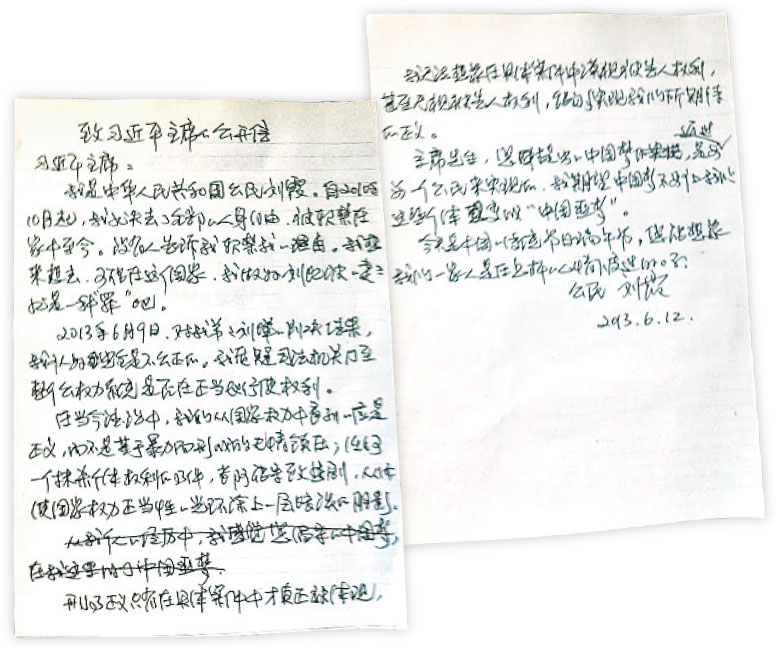 致习近平主席的公开信
习近平主席：
我是中华人民共和国公民刘霞。自2010年
10月起，我就失去了全部的人身自由，被软禁在
家中至今。没有人告诉我软禁我的理由。我想
来想去，可能在这个国家，我做为刘晓波的妻子
就是一种“罪”吧。
2013年6月9日，对于我弟弟刘晖的判决结果，
我认为完全是不公正的。我质疑司法机关乃至
整个公权力系统是否在正当地行使权利。
在当今法治中，我们从国家权力中看到的应是
正义，而不是基于暴力而形成的无情镇压；任何
一个抹杀个体权利的案件，都可能导致悲剧，从而
使国家权力正当性的光环涂上一层暗淡的阴影。
从我个人的经历中，我
在我这里 中国噩梦
司法的正义只有在具体案件中才真正能体现，
我无法想象在具体案件中漠视被告人权利，
甚至无视被告人权利，能够实现我们所期待
的正义。
主席先生，您所提出的中国梦 是要
每一个公民来实现的，我期望中国梦不对于我们
这些个体变成“中国噩梦”。
今天是中国的传统节日端午节，您能想象
我们一家人是在怎样的心情下度过的吗？
公民 刘霞
2013.6.12.